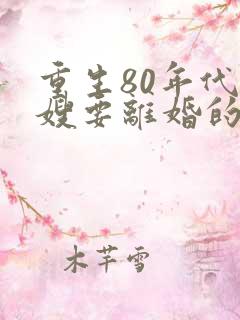 重生80年代
嫂要離婚的
木芊雪